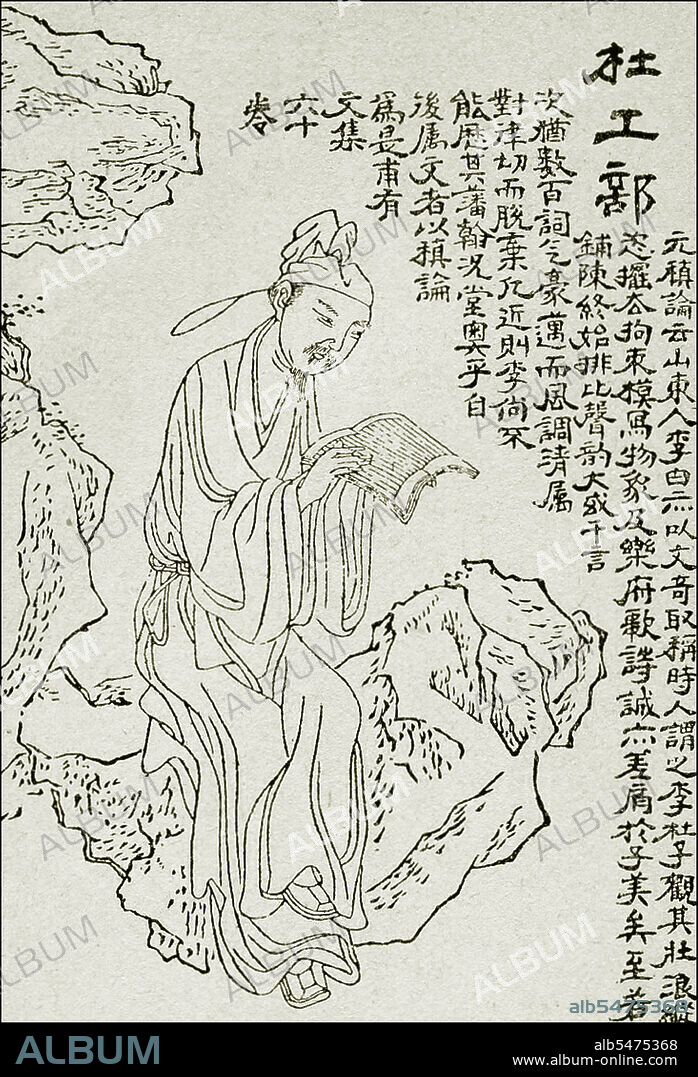 杜工部
元稹論云山東人李白亦以文奇取稱時人謂之李杜予觀其壯浪縱
恣擺去拘束模寫物象及樂府歌詩誠亦差肩於子美矣至若
鋪陳終始排比聲韵大或千言
次猶數百詞气豪邁而風調清属
對律切而脫棄凡近則李尚不
能歷其藩翰況堂奥乎白
後属文者以稹論
為是甫有
文集
六十
卷
alb5475368
ALBUM
alb5475368
www.album-online.com